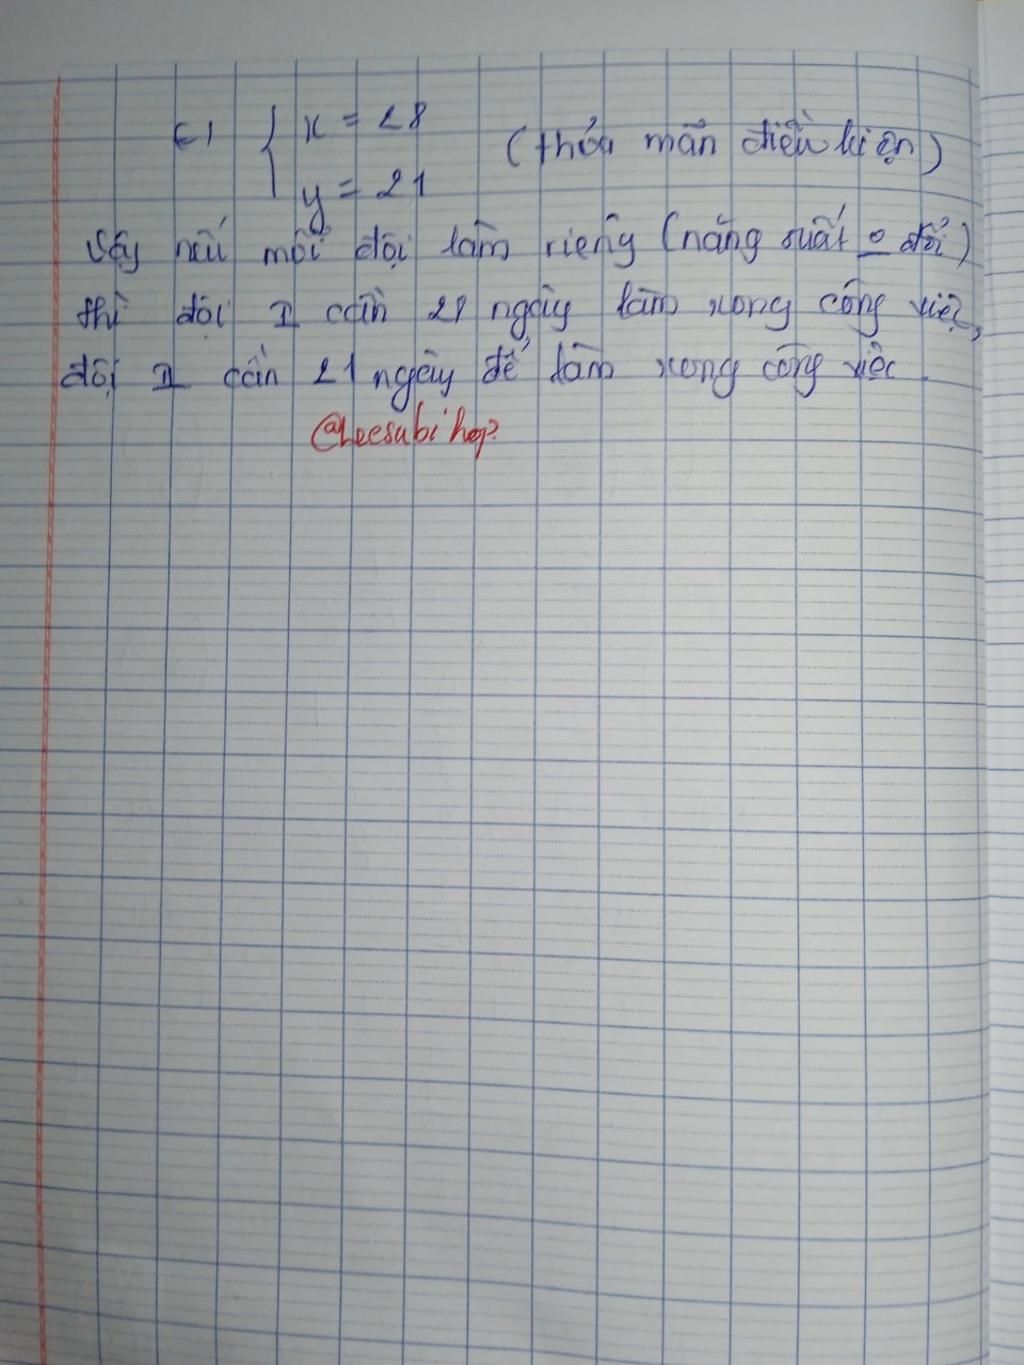 <=> { x = 28
y = 21 (thỏa mãn điều kiện)
Vậy nếu mỗi đội làm riêng (năng suất o đổi)
thì đội I cần 28 ngày làm xong công việc,
đội II cần 21 ngày để làm xong công việc.
@Leesubihop